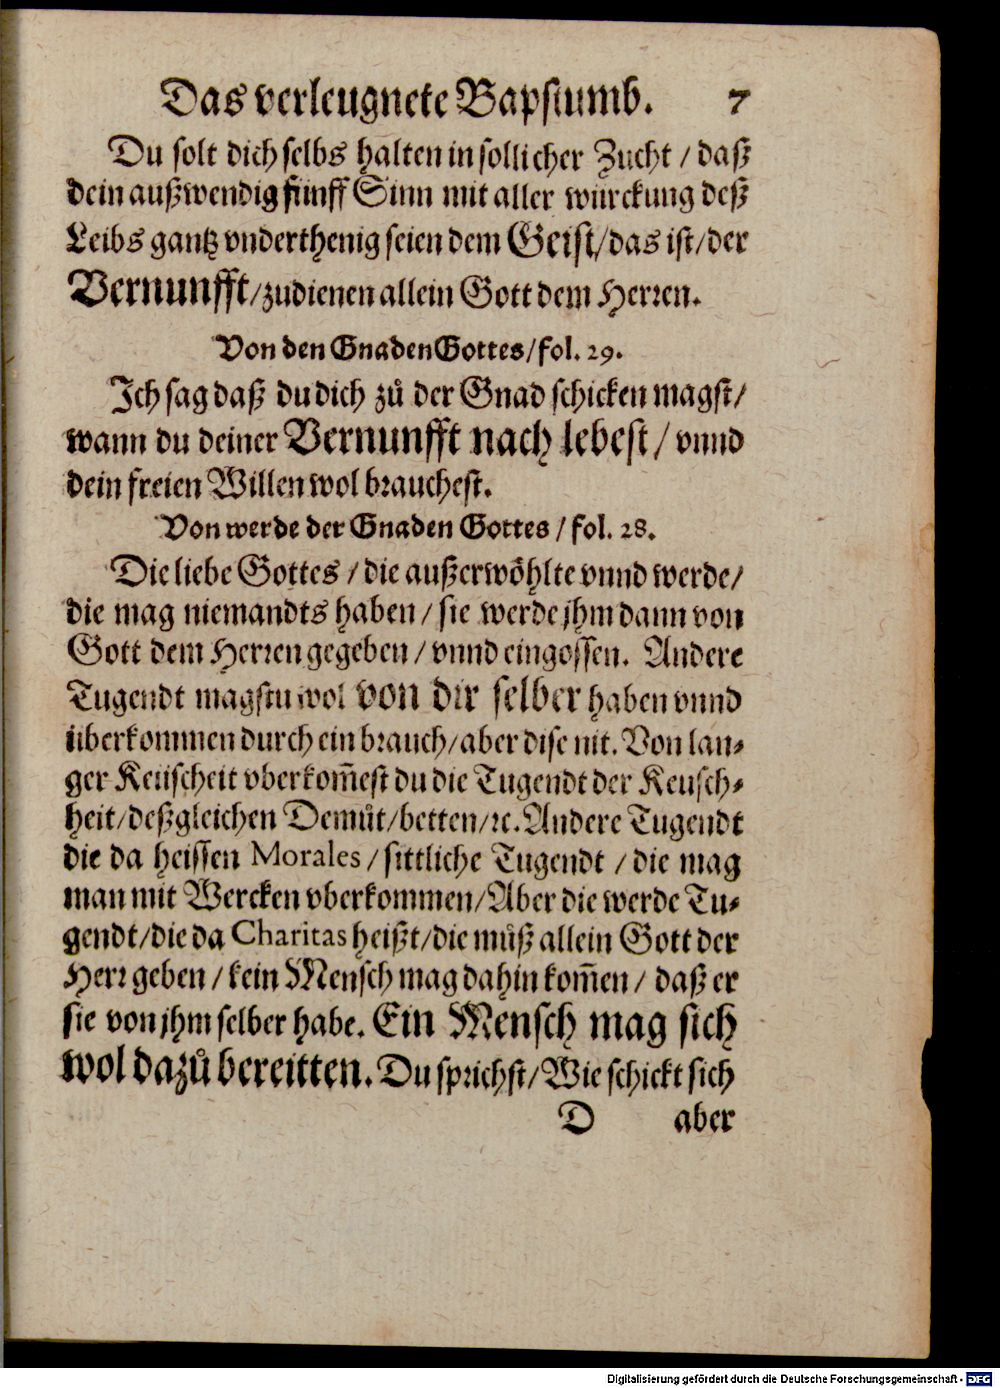 Das verleugnete Bapstumb. 7
Du solt dich selbs halten in sollicher Zucht / daß
dein außwendig fünff Sinn mit aller würckung deß
Leibs gantz vnderthenig seien dem Geist/das ist/der
Vernunfft/zudienen allein Gott dem Herren.
Von den Gnaden Gottes/fol. 29.
Ich sag daß du dich zů der Gnad schicken magst/
wann du deiner Vernunfft nach lebest / vnnd
dein freien Willen wol brauchest.
Von werde der Gnaden Gottes / fol. 28.
Die liebe Gottes / die außerwöhlte vnnd werde/
die mag niemandts haben / sie werde jhm dann von
Gott dem Herren gegeben / vnnd eingossen. Andere
Tugendt magstu wol von dir selber haben vnnd
überkommen durch ein brauch/aber dise nit. Von lan-
ger Keüscheit vberkom̄est du die Tugendt der Keusch-
heit/deßgleichen Demůt/betten/ꝛc. Andere Tugendt
die da heissen Morales / sittliche Tugendt / die mag
man mit Wercken vberkommen/Aber die werde Tu-
gendt/die da Charitas heißt/die můß allein Gott der
Herr geben / kein Mensch mag dahin kom̄en / daß er
sie von jhm selber habe. Ein Mensch mag sich
wol dazů bereitten. Du sprichst/Wie schickt sich
D aber
Digitalisierung gefördert durch die Deutsche Forschungsgemeinschaft - DFG